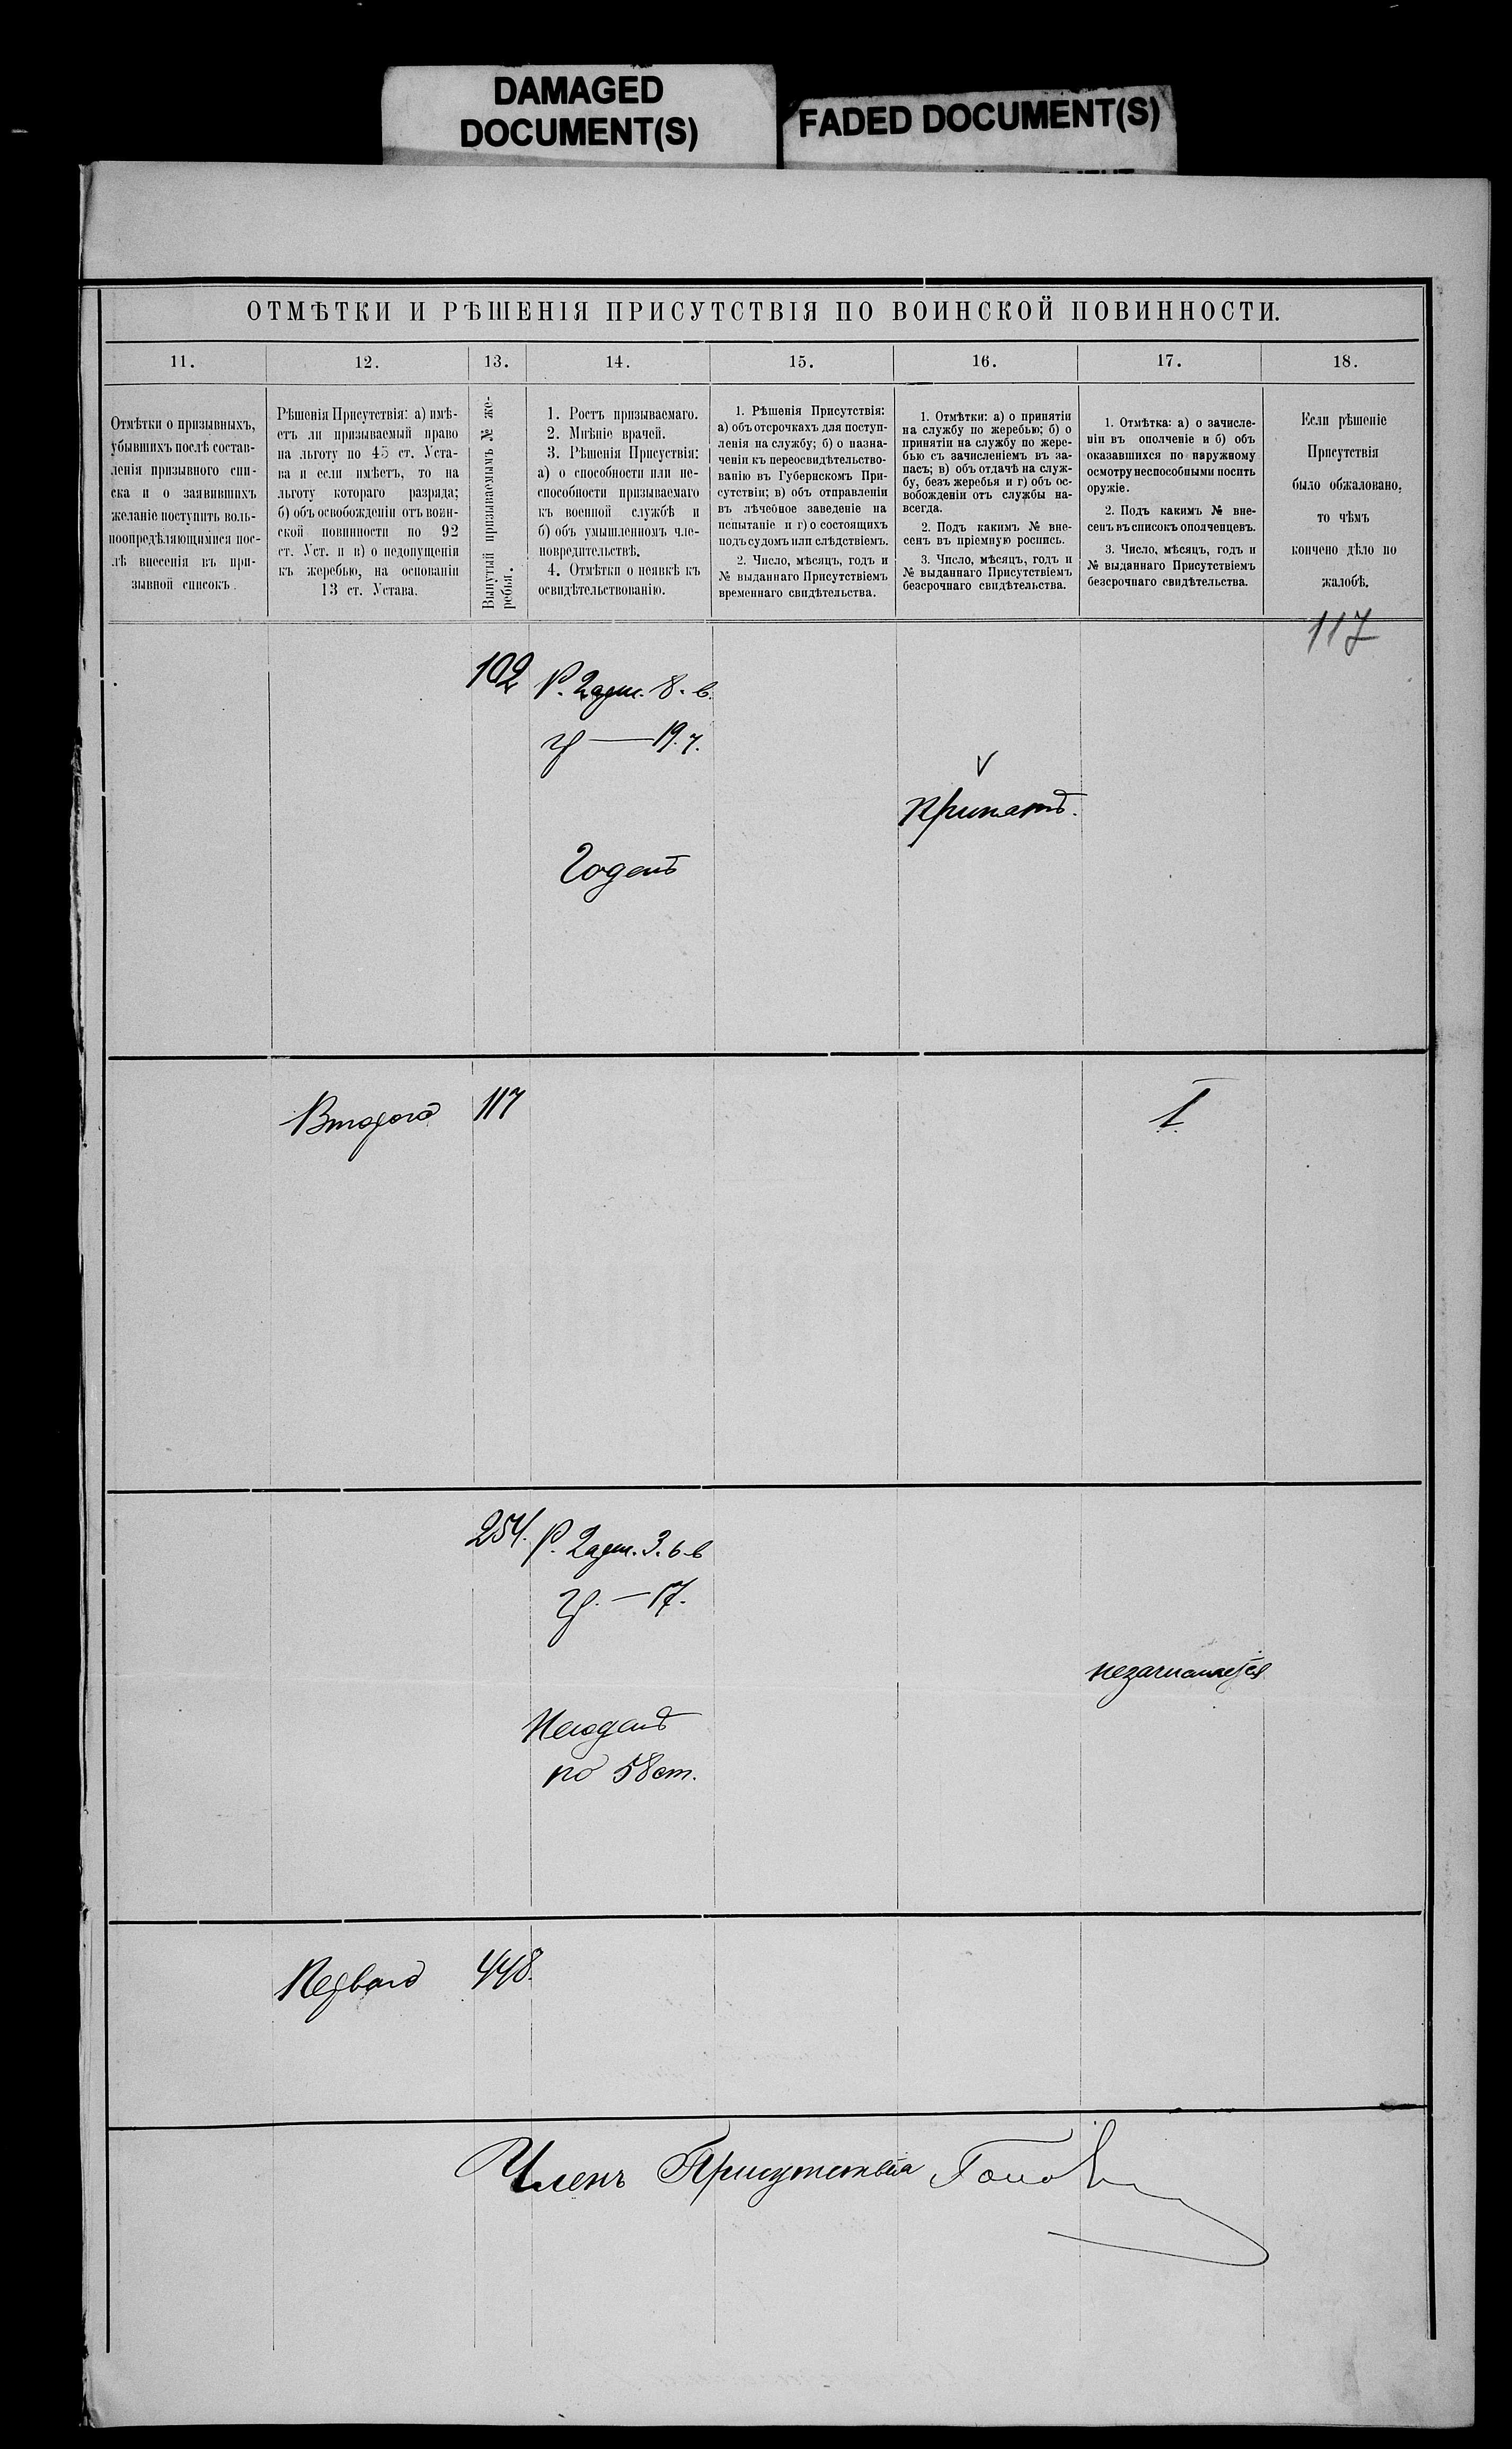 DAMAGED
DOCUMENT(S)
FADED DOCUMENT(S)
ОТМѢТКИ И РѢШЕНІЯ ПРИСУТСТВІЯ ПО ВОИНСКОЙ ПОВИННОСТИ.
11.
12.
13.
14.
15.
16.
17.
18.
Отмѣтки о призывныхъ,
убывшихъ послѣ состав-
ленія призывного спи-
ска и о заявившихъ
желаніе поступить воль-
ноопредѣляющимися пос-
лѣ внесенія въ при-
зывной списокъ.
Рѣшенія Присутствія: а) имѣ-
етъ ли призываемый право
на льготу по 45 ст. Уста-
ва и если имѣетъ, то на
льготу котораго разряда;
б) объ освобожденіи отъ воин-
ской повинности по 92
ст. Уст. и в) о недопущеніи
къ жеребью, на основаніи
13 ст. Устава.
Вынутый призываемымъ № же-
ребья.
1. Ростъ призываемаго.
2. Мнѣніе врачей.
3. Рѣшенія Присуствія:
а) о способности или не-
способности призываемаго
къ военной службѣ и
б) объ умышленномъ чле-
новредительствѣ.
4. Отмѣтки о неявкѣ къ
освидѣтельствованію.
1. Рѣшенія Присутствія:
а) объ отсрочкахъ для поступ-
ленія на службу; б) о назна-
ченіи къ переосвидѣтельство-
ванію въ Губернскомъ При-
сутствіи; в) объ отправленіи
въ лѣчебное заведеніе на
испытаніе и г) о состоящихъ
подъ судомъ или слѣдствіемъ.
2. Число, мѣсяцъ, годъ и
№ выданнаго Присутствіемъ
временнаго свидѣтельства.
1. Отмѣтки: а) о принятіи
на службу по жеребью; б) о
принятіи на службу по жере-
бью съ зачисленіемъ въ за-
пасъ; в) объ отдачѣ на служ-
бу, безъ жеребья и г) объ ос-
вобожденіи отъ службы на-
всегда.
2. Подъ какимъ № вне-
сенъ въ пріемную роспись.
3. Число, мѣсяцъ, годъ и
№ выданнаго Присутствіемъ
безсрочнаго свидѣтельства.
1. Отмѣтка: а) о зачисле-
ніи въ ополченіе и б) объ
оказавшихся по наружному
осмотру неспособными носить
оружіе.
2. Подъ какимъ № вне-
сенъ въ списокъ ополченцевъ.
3. Число, мѣсяцъ, годъ и
№ выданнаго Присутствіемъ
безсрочнаго свидѣтельства.
Если рѣшеніе
Присутствія
было обжаловано,
то чѣмъ
кончено дѣло по
жалобѣ.
117
102
Р. 2 арш. 8. в.
гр — 19. ч.
Принятъ.
Годенъ
Втораго
117
1
254.
Р. 2 арш. 3. в
гр. — 17.
Негоденъ
по 58 ст.
Перваго
448.
Членъ Присутствія